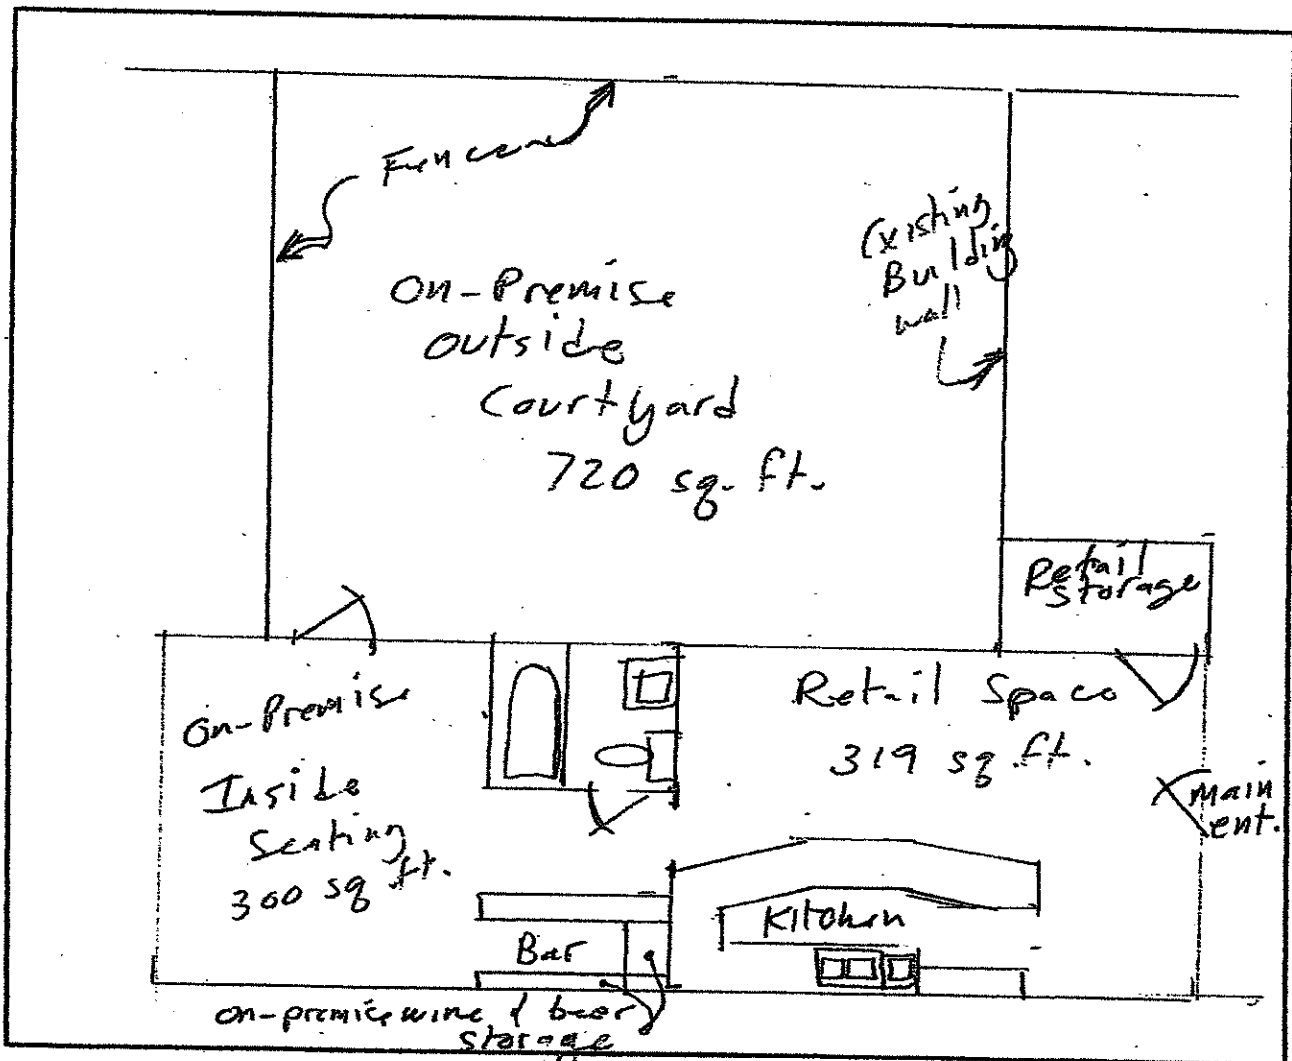 Fence
Existing
Building
wall
On-Premise
outside
Courtyard
720 sq. ft.
Retail
storage
On-Premise
Inside
Seating
300 sq ft.
Retail Space
319 sq. ft.
main
ent.
Kitchen
Bar
on-premise wine & beer
storage